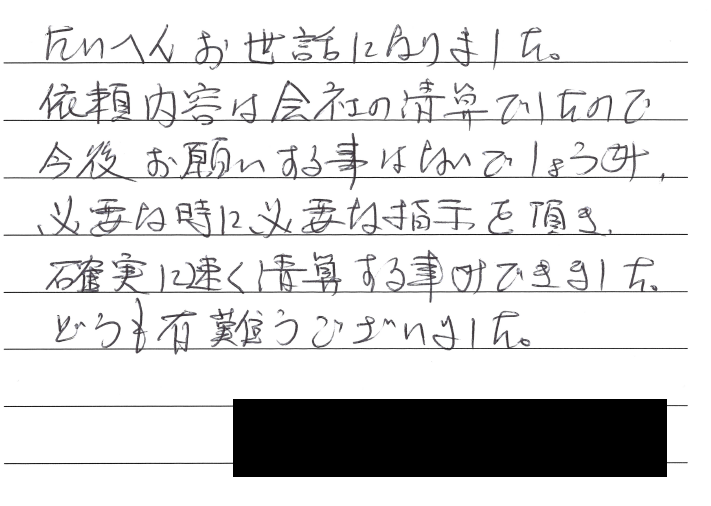 たいへんお世話になりました。
依頼内容は会社の清算でしたので
今後お願いする事はないでしょうが、
必要な時に必要な指示を頂き、
確実に速く清算する事ができました。
どうも有難うございました。